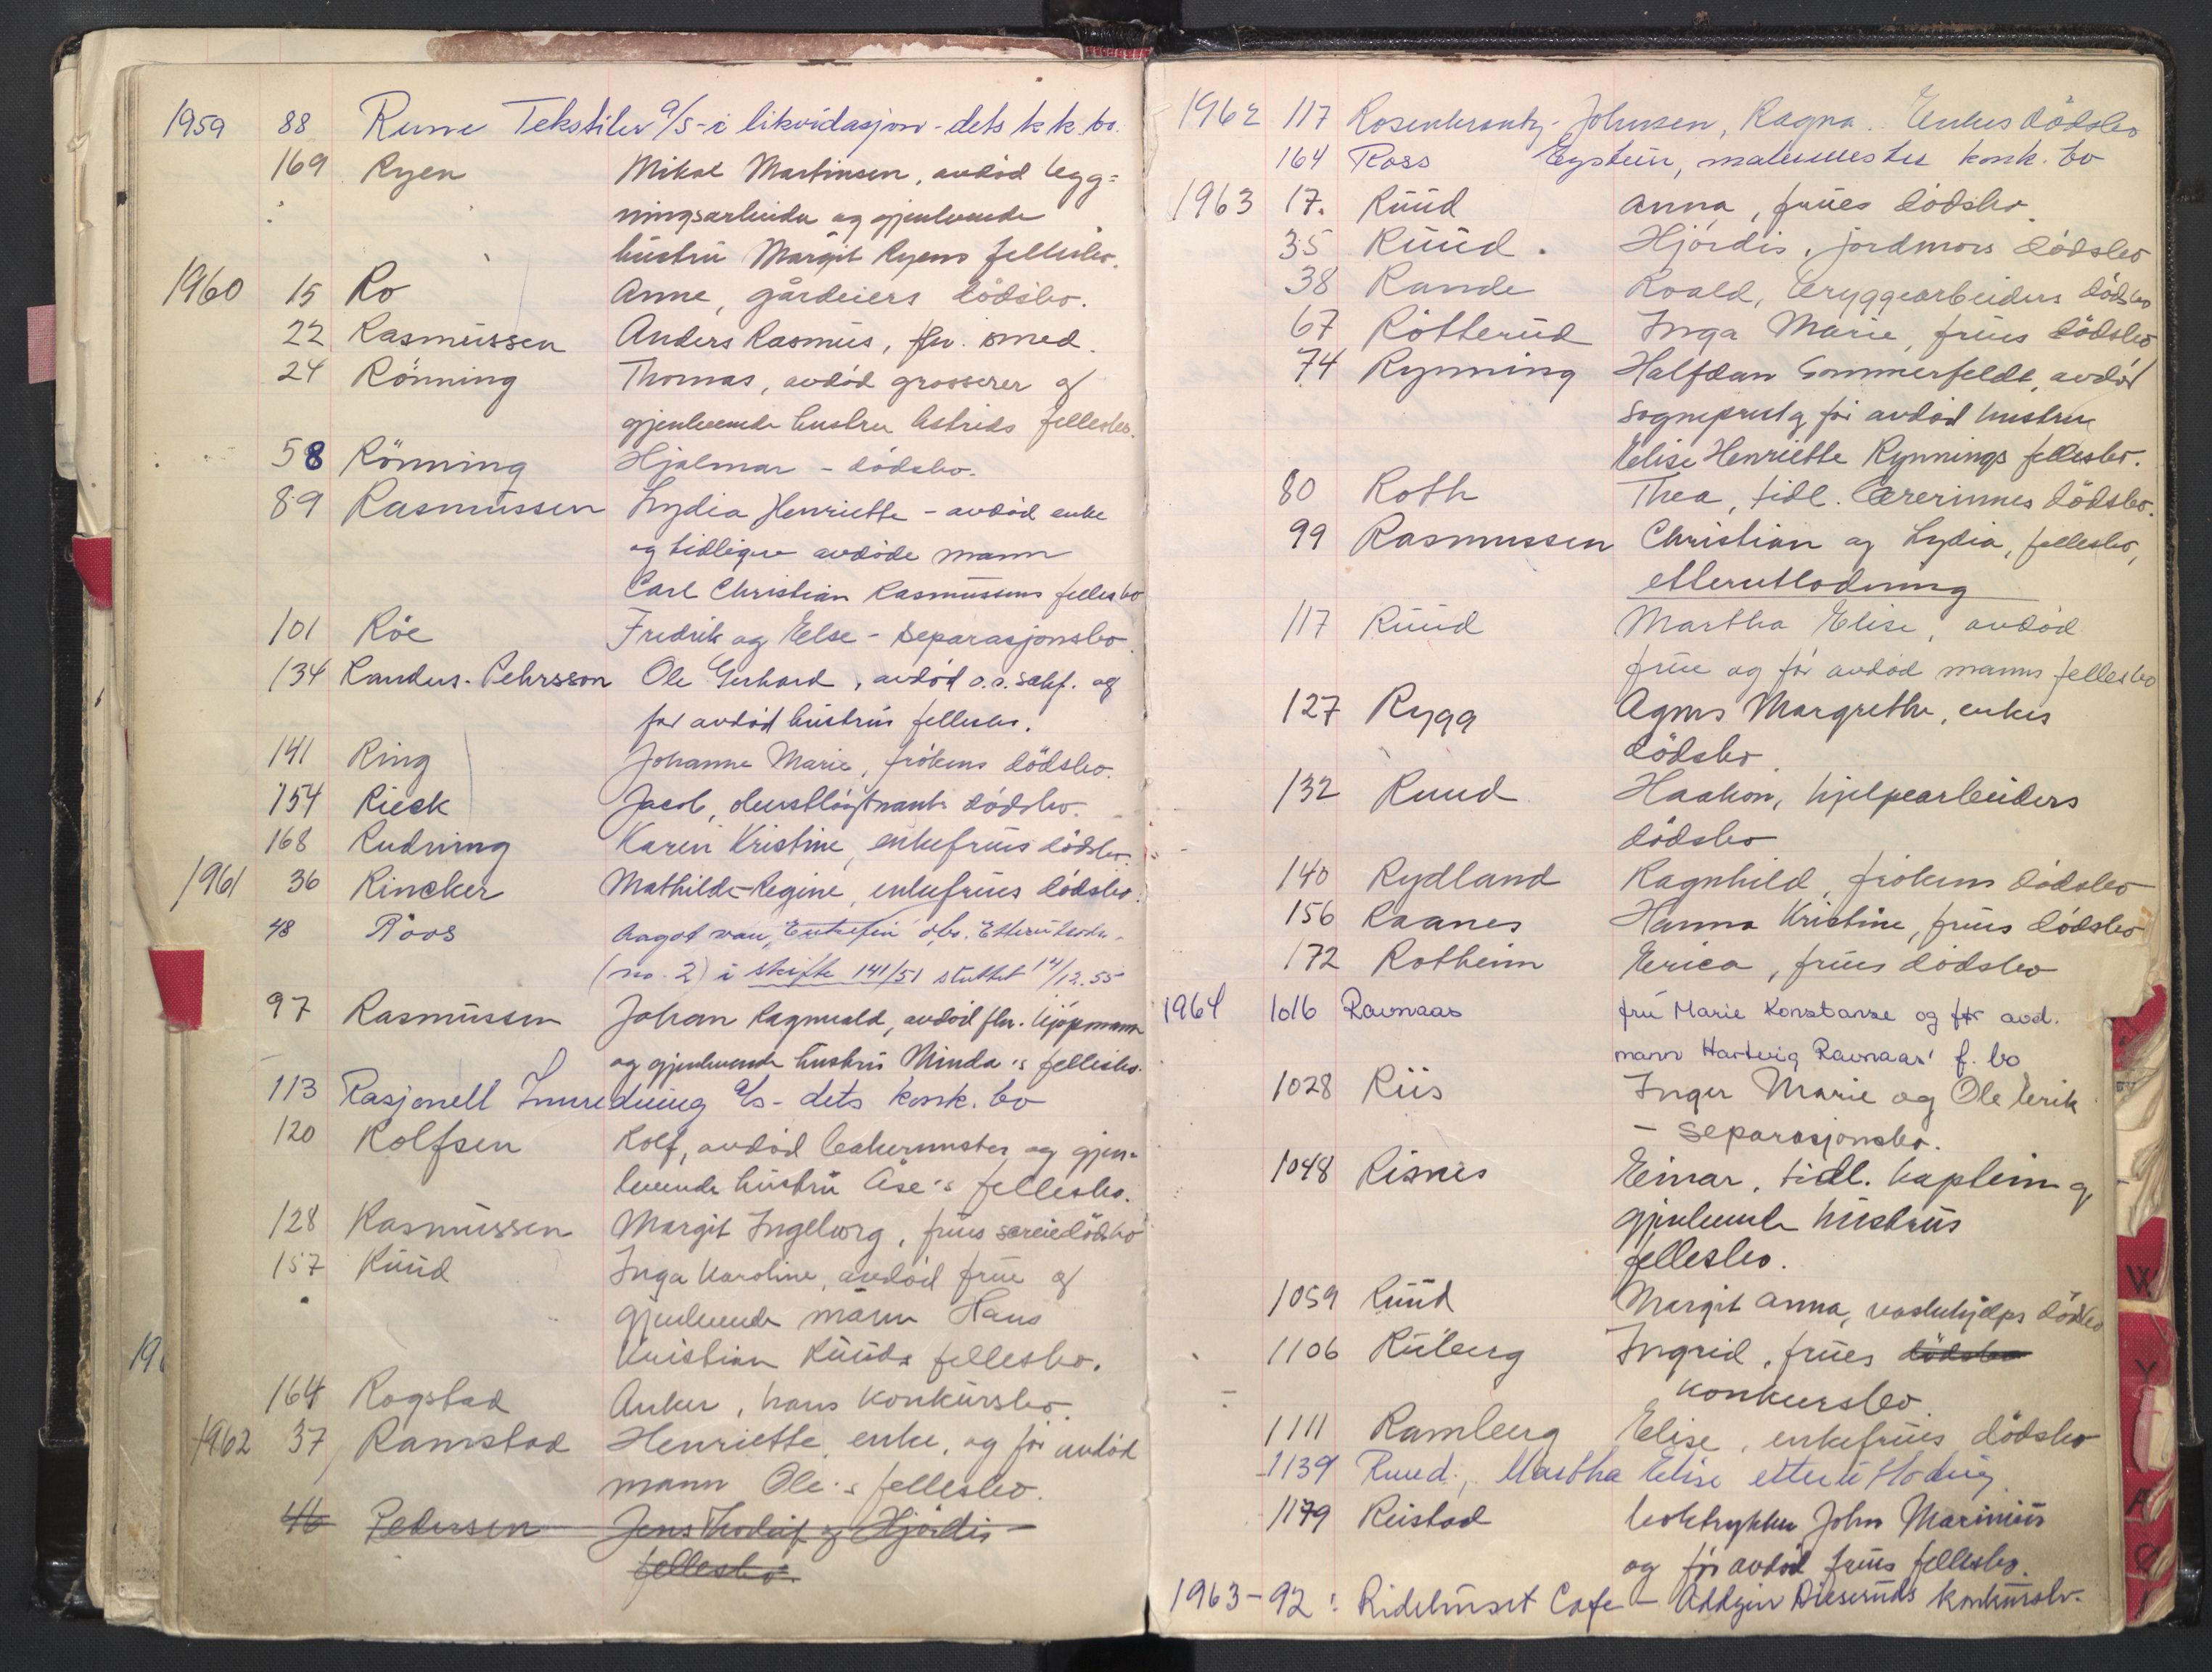 1959 88 Rune Tekstiler a/s - i likvidasjon - dets k.k. bo.
169 Ryen Mikal Martinsen, avdød bygg=
ningsarbeider og gjenlevende
hustru Margit Ryens fellesbo.
1960 15 Ro Anne, gårdeiers dödsbo.
22 Rasmussen Anders Rasmus, fhv. smed.
24 Rönning Thomas, avdöd grosserer og
gjenlevende hustru Astrids fellesbo.
58 Rönning Hjalmar - dödsbo.
89 Rasmussen Lydia Henriette - avdöd enke
og tidligere avdöde mann
Carl Christian Rasmussens fellesbo
101 Röe Fredrik og Else - separasjonsbo.
134 Randers-Pehrsson Ole Gerhard, avdöd o.a. sakf. og
før avdöd hustrus fellesbo.
141 Ring Johanne Marie, frökens dödsbo.
154 Rieck Jacob, oberstløytnants dödsbo.
168 Rudning Karen Kristine, enkefrues dödsbo.
1961 36 Rincker Mathilde Regine, enkefrues dödsbo.
48 Roos Aagot van, dbo.
(no. 2) i skifte 141/51 sluttet 14/12.55
97 Rasmussen Johan Ragnvald, avdöd fhv. kjøpmann
og gjenlevende hustru Minda's fellesbo.
113 Rasjonell Innredning a/s - dets konk. bo
120 Rolfsen Rolf, avdöd bakermester og gjen=
levende hustru Åse's fellesbo.
128 Rasmussen Margit Ingeborg, frues særeiedödsbo
157 Ruud Inga Karoline, avdöd frue og
gjenlevende mann Hans
Kristian Ruuds fellesbo.
164 Rogstad Anker, hans konkursbo.
1962 37 Ramstad Henriette, enke, og før avdöd
mann Ole's fellesbo.
46 Pedersen Jens Thodolf og Hjördis
fellesbo.
196
1962 117 Rosenkrantz-Johnsen, Ragna. Enkes dödsbo
164 Ross Eystein, malermester konk. bo
1963 17. Ruud Anna, frues dödsbo.
35 Ruud. Hjördis, jordmors dödsbo
38 Rande Roald, bryggearbeiders dödsbo
67 Rötterud Inga Marie, frues dödsbo
74 Rynning Halfdan Sommerfeldt, avdöd
sogneprest og før avdöd hustru
Elise Henriette Rynnings fellesbo.
80 Roth Thea, tidl. lærerinnes dödsbo.
99 Rasmussen Christian og Lydia, fellesbo,
etterutlodning
117 Ruud Martha Elise, avdöd
frue og før avdöd manns fellesbo
127 Rygg Agnes Margrethe, enkes
dödsbo.
132 Ruud Haakon, hjelpearbeiders
dödsbo
140 Rydland Ragnhild, frökens dödsbo
156 Raanes Hanna Kristine, frues dödsbo
172 Rotheim Erica, frues dödsbo
1964 1016 Ravnaas fru Marie Konstanse og før avd.
mann Hartvig Ravnaas' f. bo
1028 Riis Inger Marie og Ole Erik
- separasjonsbo.
1048 Risnes Einar, tidl. kaptein og
gjenlevende hustrus
fellesbo.
1059 Ruud Margit Anna, vaskehjelps dödsbo
1106 Ruberg Ingrid, frues dödsbo
konkursbo
1111 Ramberg Elise, enkefrues dödsbo
1139 Ruud, Martha Elise etterutlodning
1179 Reistad boktrykker John Marinius
og før avdöd frues fellesbo.
1963 - 92: Ridehuset Cafe - Oddgeir Dieseruds konkursbo.
W
Y